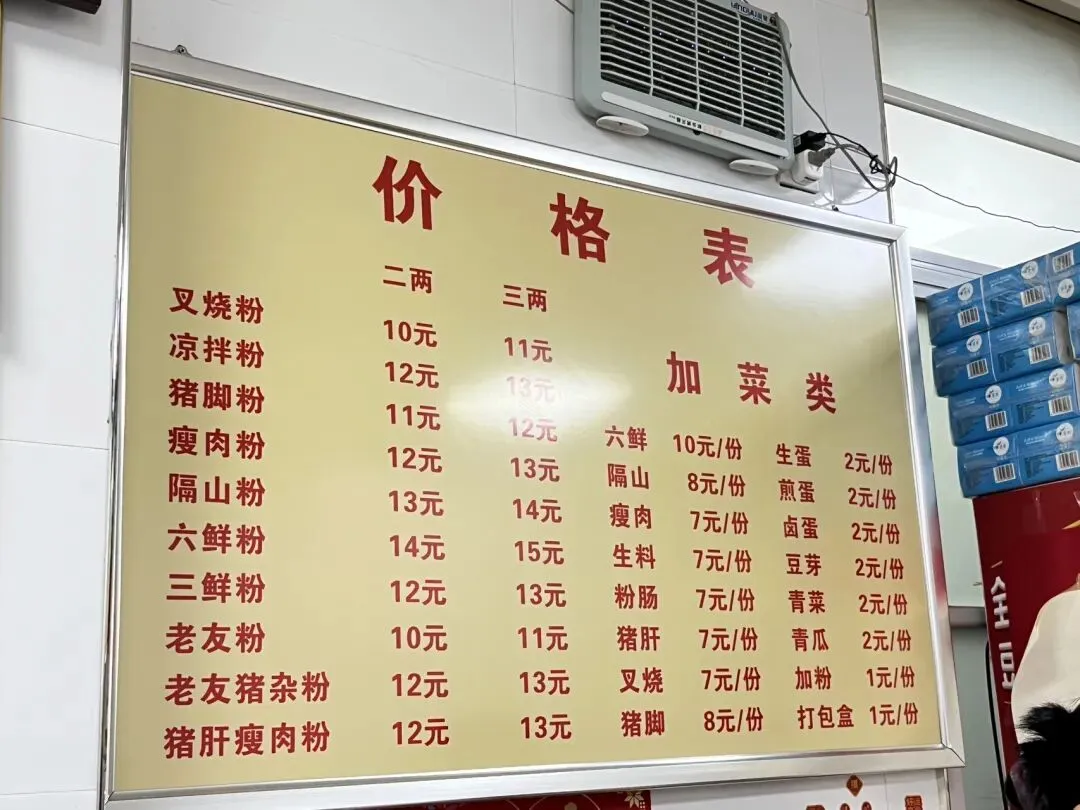 价格表
二两 三两
叉烧粉 10元 11元
凉拌粉 12元 13元
猪脚粉 11元 12元
瘦肉粉 12元 13元
隔山粉 13元 14元
六鲜粉 14元 15元
三鲜粉 12元 13元
老友粉 10元 11元
老友猪杂粉 12元 13元
猪肝瘦肉粉 12元 13元
加菜类
六鲜 10元/份 生蛋 2元/份
隔山 8元/份 煎蛋 2元/份
瘦肉 7元/份 卤蛋 2元/份
生料 7元/份 豆芽 2元/份
粉肠 7元/份 青菜 2元/份
猪肝 7元/份 青瓜 2元/份
叉烧 7元/份 加粉 1元/份
猪脚 8元/份 打包盒 1元/份
全